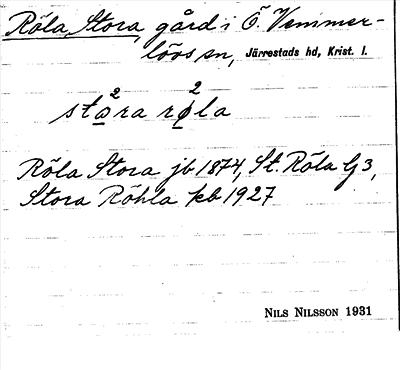 Röla, Stora, gård i Ö. Vemmer-
lövs sn, Järrestads hd, Krist. l.
2 2
stora röla
Röla Stora jb 1874, St. Röla G3,
Stora Röhla kb 1927
NILS NILSSON 1931